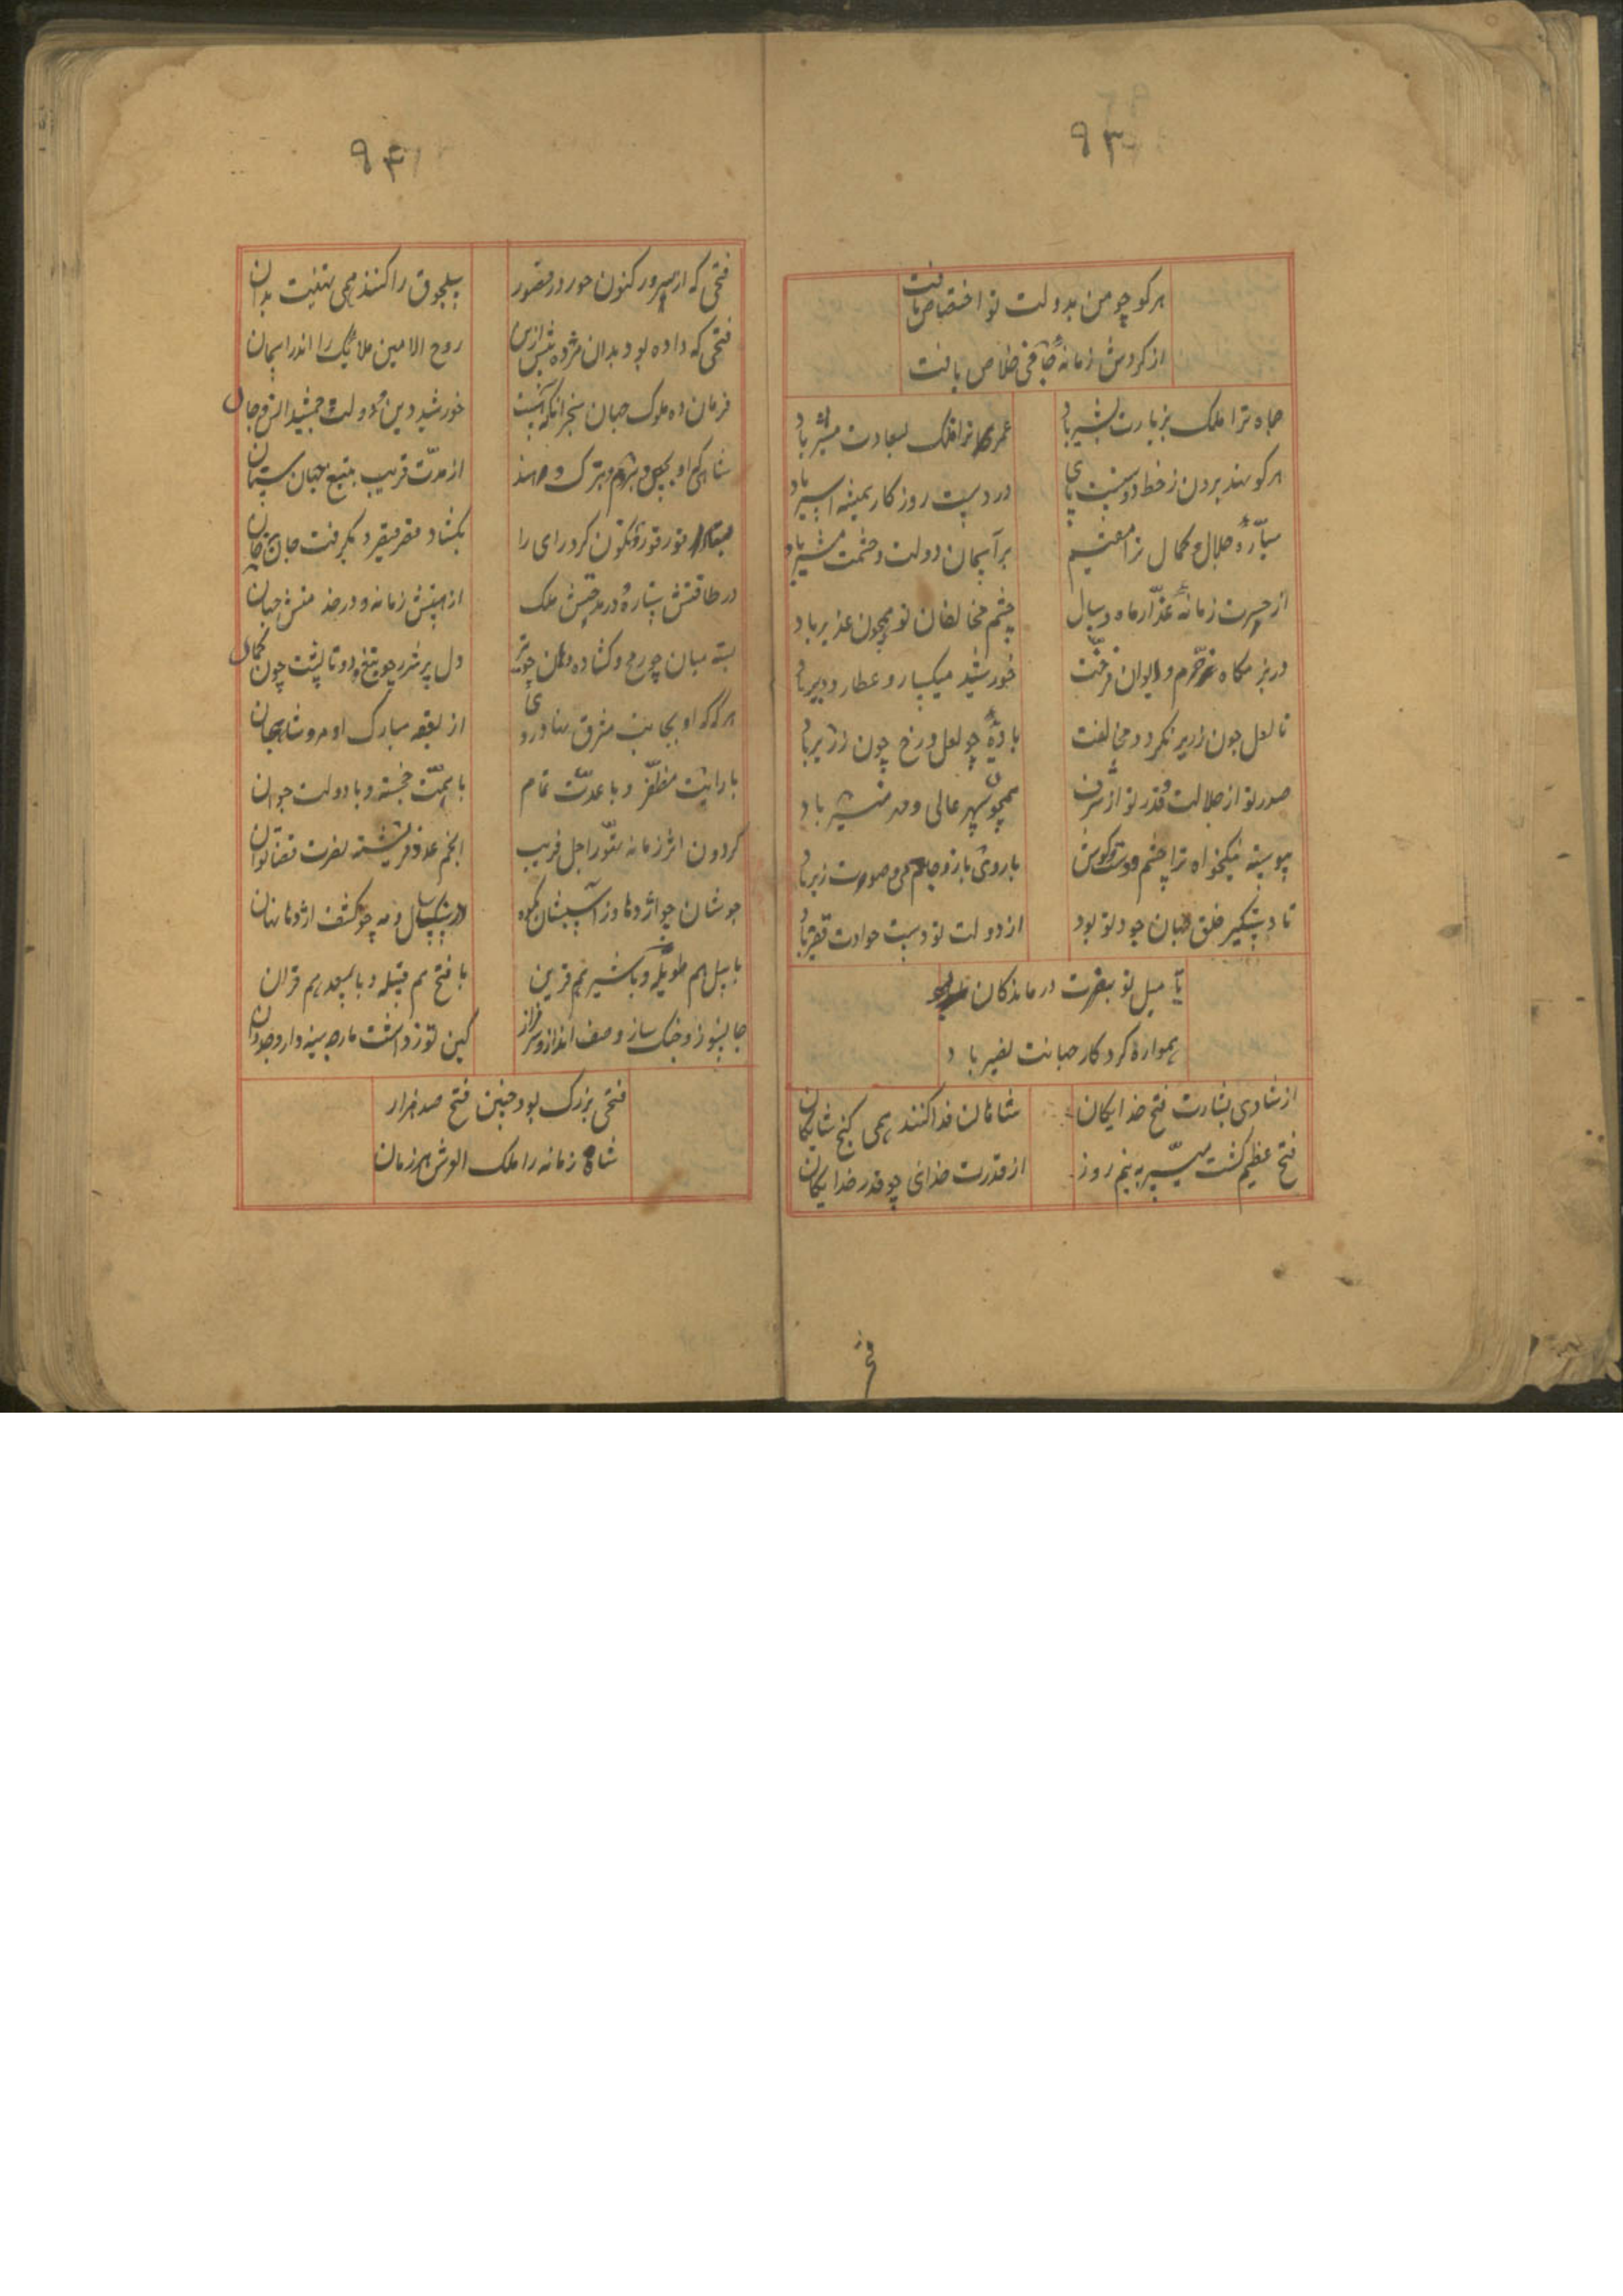 ۹۳
هرکو چو من بدولت تو اختصاص یافت
از کردش زمانهٔ جافی خلاص یافت
جاه ترا ملک بزیارت بشیر باد
عمر ترا فلک بسعادت مبشر باد
هرکو نهد برون ز خط دوستیت پای
در دست روزکار همیشه اسیر باد
سیّارهٔ جلال و کمال ترا مقیم
بر آسمان دولت و حشمت مسیر باد
از حسرت زمانهٔ غدّار ماه و سال
چشم مخالفان تو همچون غدیر باد
در بزمکاه خرّم و ایوان فرخت
خورشید میکسار و عطارد دبیر باد
تا لعل چون زریر نکردد مخالفت
بادهٔ چو لعل و رخ چون زریر باد
صدر تو از جلالت و قدر تو از شرف
همچون سپهر عالی و بدر منیر باد
پیوسته نیکخواه ترا چشم و دست و کوش
با روی یار و جام می و صوت زیر باد
تا دستکیر خلق جهان جود تو بود
از دولت تو دست حوادث قصیر باد
تا میل تو بنصرت درماندکان
همواره کردکار جهانت نصیر باد
از شادی بشارت فتح خدایکان
شاهان فدا کنند همی کنج شایکان
فتح عظیم کشت میسّر به نیم روز
از قدرت خدای چو قدر خدایکان
۹۴
فتحی که از سرور کنون حور در قصور
سلجوق را کنند همی تهنیت بدان
فتحی که داده بود بدان مژده پیش ازین
روح الامین ملائک را اندر آسمان
فرمان ده ملوک جهان سنجر آنکه هست
خورشید دین و دولت و جمشید انس و جان
شاهی که او بچین و بروم و بترک و هند
از مدّت قریب بتیغ جهان ستان
کرد رای را
بکشاد قصر قیصر و بکرفت جان خان
در طاقتش ستاره و در مدحتش ملک
از هیبتش زمانه و در خدمتش جهان
بسته میان چو رمح و کشاده دهان چو تیر
دل پر شرر چو تیغ و دوتا پشت چون کمان
هرکه که او بجانب مشرق نهاد روی
از بقعه مبارک او مرو شاهجهان
با رایت مظفّر و با عدّت تمام
با همّت خجسته و با دولت جوان
کردون اثر زمانه تهوّر اجل فریب
انجم عدد فریشته نصرت قضا توان
جوشان چو اژدها و ز آسیبشان بکوه
در سنک سال و مه چو کشف اژدها نهان
با پیل هم طویله و با شیر هم قرین
با فتح هم قبیله و با سعد هم قران
جانسوز و جنک ساز و صف انداز و سرفراز
کین توز و داشت باره سپه دار و جهدوان
فتحی بزرک بود چنین فتح صد هزار
شاه زمانه را ملک العرش هر زمان